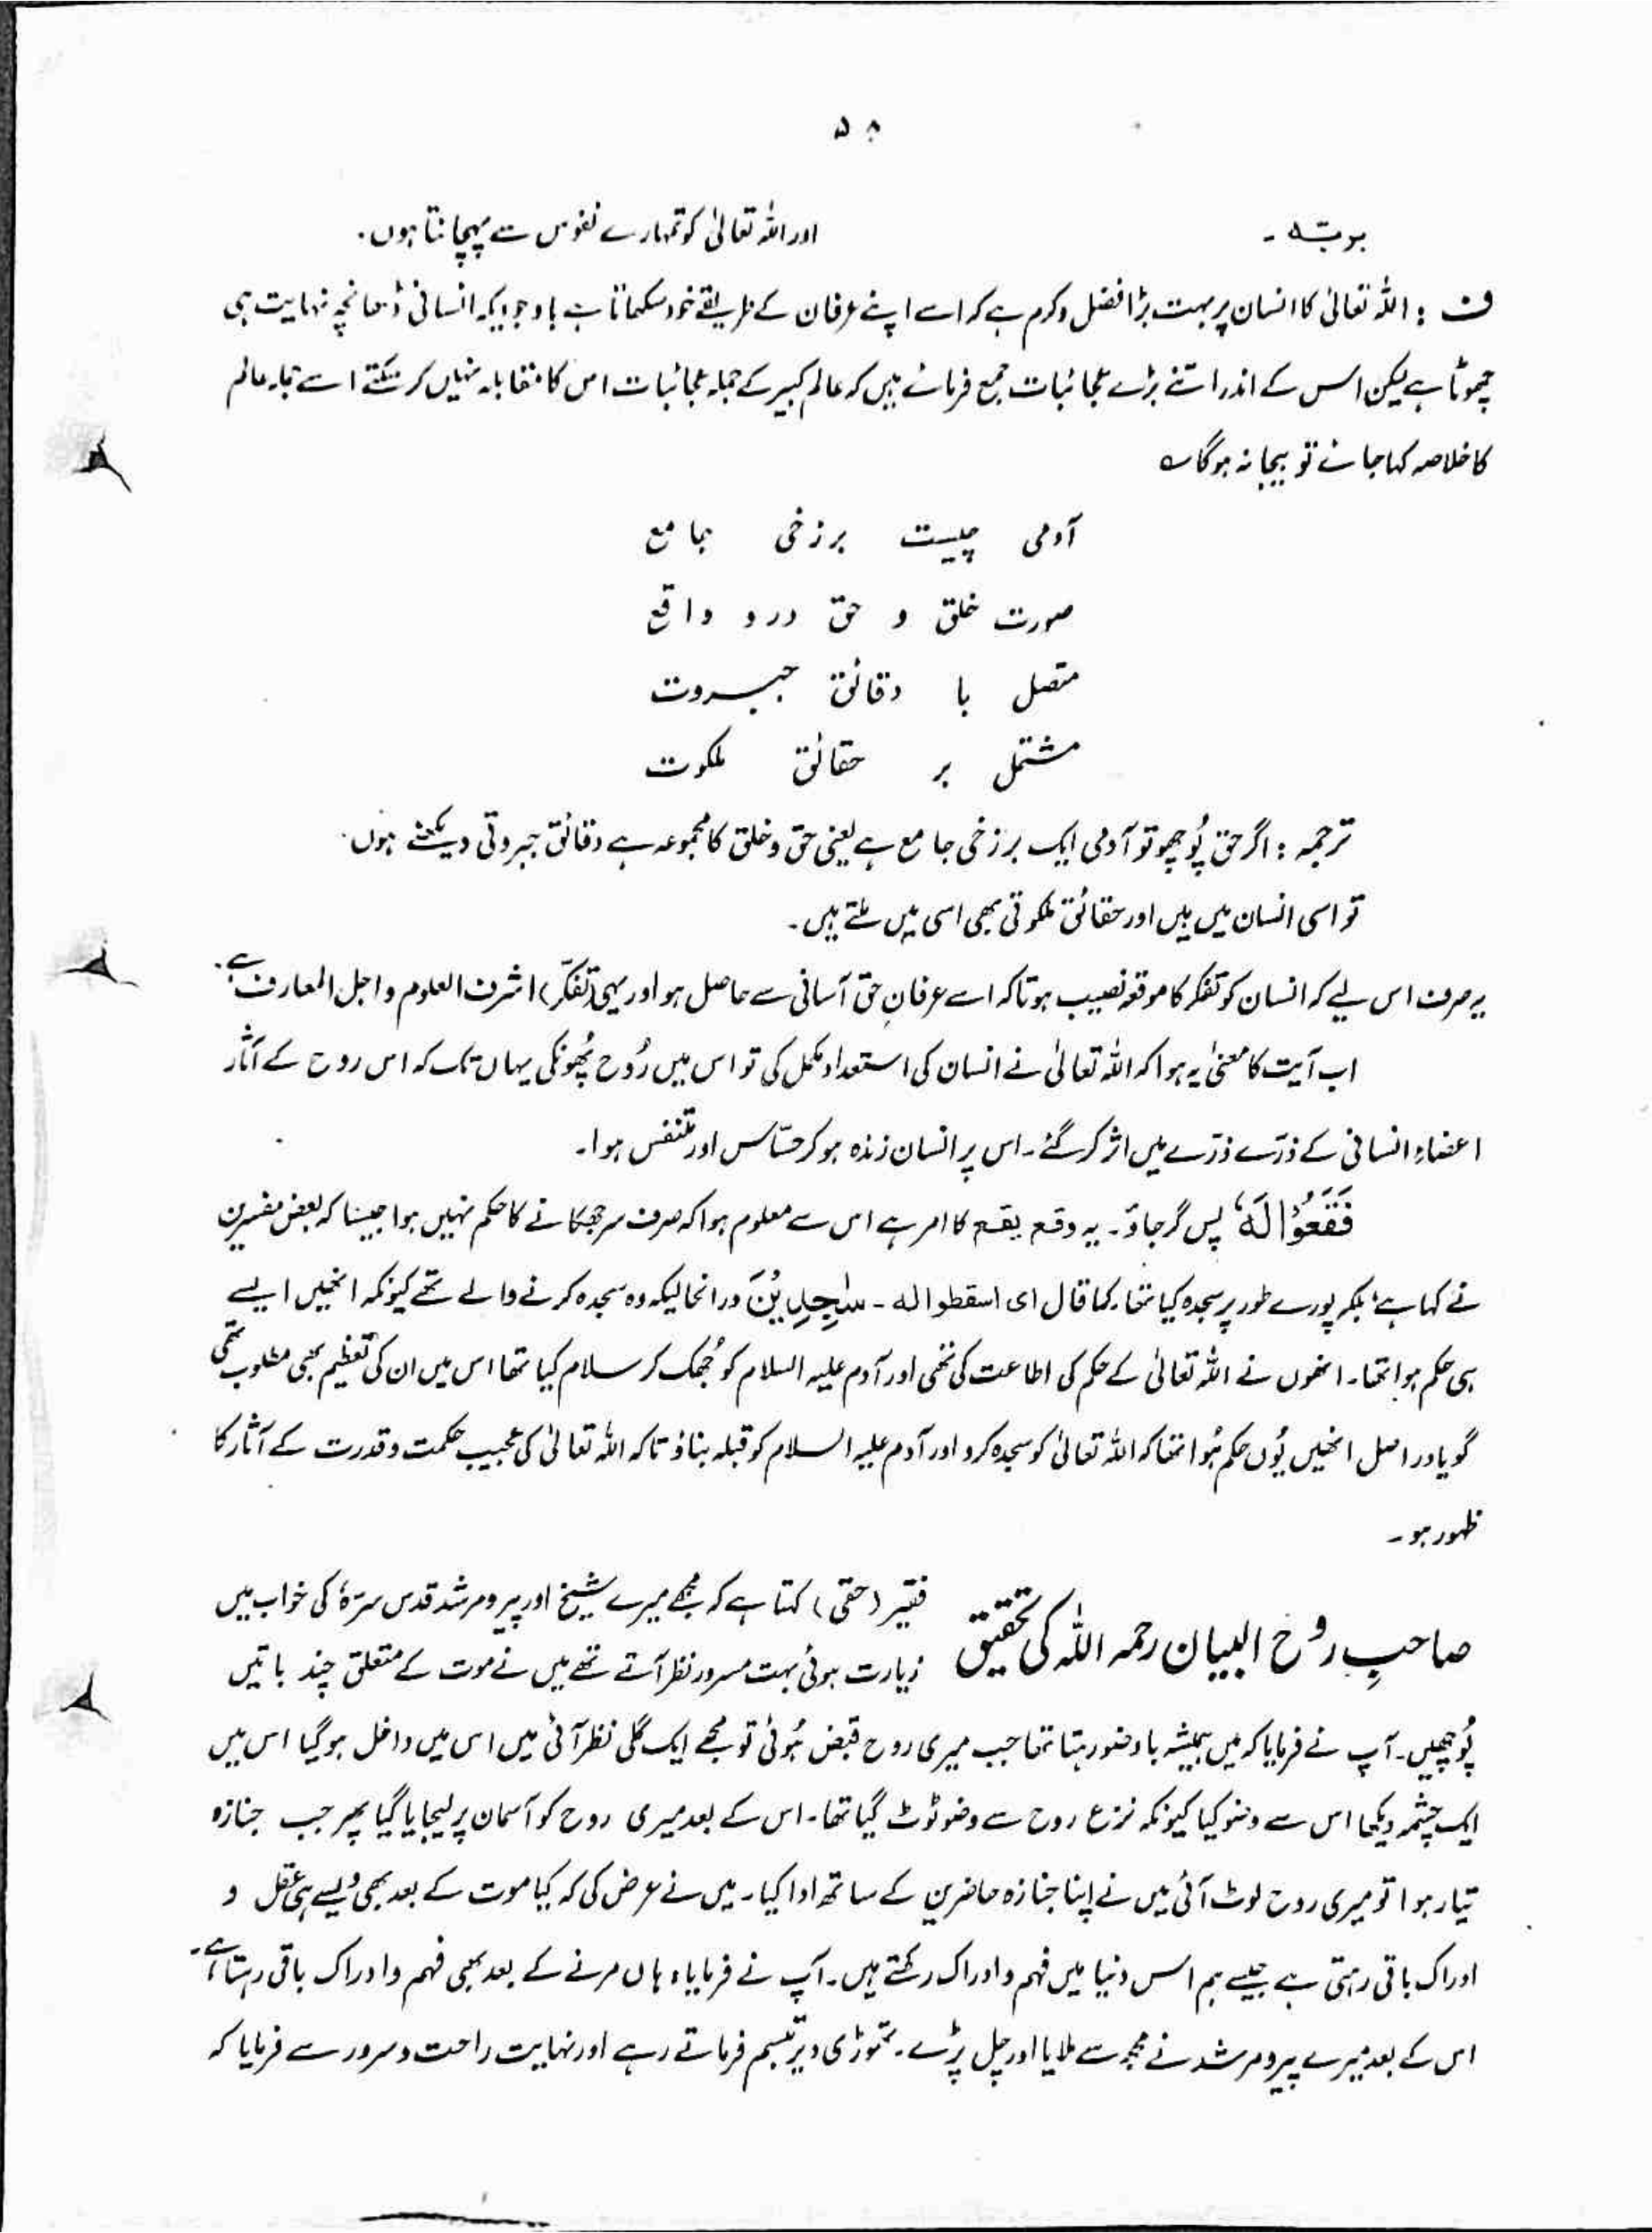 ۵۸
بربّہ ۔ اور اللہ تعالیٰ کو تمہارے نفوس سے پہچانتا ہوں۔
ف : اللہ تعالیٰ کا انسان پر بہت بڑا فضل و کرم ہے کہ اسے اپنے عرفان کے طریقے خود سکھاتا ہے باوجودیکہ انسانی ڈھانچہ نہایت ہی
چھوٹا ہے لیکن اس کے اندر اتنے بڑے عجائبات جمع فرمائے ہیں کہ عالمِ کبیر کے جملہ عجائبات اس کا مقابلہ نہیں کر سکتے اسے جملہ عالم
کا خلاصہ کہا جائے تو بیجا نہ ہوگا ؎
آدمی چیست برزخی جامع
صورت خلق و حق درو واقع
متصل با دقائق جبروت
مشتمل بر حقائق ملکوت
ترجمہ : اگر حق پُوچھو تو آدمی ایک برزخی جامع ہے یعنی حق و خلق کا مجموعہ ہے دقائق جبروتی دیکھنے ہوں
تو اسی انسان میں ہیں اور حقائق ملکوتی بھی اسی میں ملتے ہیں۔
یہ صرف اس لیے کہ انسان کو تفکر کا موقعہ نصیب ہو تاکہ اسے عرفانِ حق آسانی سے حاصل ہو اور یہی (تفکّر) اشرف العلوم و اجل المعارف ہے۔
اب آیت کا معنیٰ یہ ہوا کہ اللہ تعالیٰ نے انسان کی استعداد مکمل کی تو اس میں رُوح پُھونکی یہاں تک کہ اس روح کے آثار
اعضاءِ انسانی کے ذرّے ذرّے میں اثر کر گئے۔ اس پر انسان زندہ ہو کر حسّاس اور متنفس ہوا۔
فَقَعُوْا لَهٗ پس گر جاؤ۔ یہ وقع یقع کا امر ہے اس سے معلوم ہوا کہ صرف سر جھکانے کا حکم نہیں ہوا جیسا کہ بعض مفسرین
نے کہا ہے؛ بلکہ پورے طور پر سجدہ کیا تھا کما قال ای اسقطوا له ۔ سٰجِدِیْنَ درانحالیکہ وہ سجدہ کرنے والے تھے کیونکہ انھیں ایسے
ہی حکم ہوا تھا۔ انھوں نے اللہ تعالیٰ کے حکم کی اطاعت کی تھی اور آدم علیہ السلام کو جُھک کر سلام کیا تھا اس میں ان کی تعظیم بھی مطلوب تھی
گویا دراصل انھیں یُوں حکم ہُوا تھا کہ اللہ تعالیٰ کو سجدہ کرو اور آدم علیہ السلام کو قبلہ بناؤ تاکہ اللہ تعالیٰ کی عجیب حکمت و قدرت کے آثار کا
ظہور ہو۔
صاحبِ روح البیان رحمہ اللہ کی تحقیق
فقیر (حقی) کہتا ہے کہ مجھے میرے شیخ اور پیر و مرشد قدس سرّہٗ کی خواب میں
زیارت ہوئی بہت مسرور نظر آتے تھے میں نے موت کے متعلق چند باتیں
پُوچھیں۔ آپ نے فرمایا کہ میں ہمیشہ باوضو رہتا تھا جب میری روح قبض ہُوئی تو مجھے ایک گلی نظر آئی میں اس میں داخل ہوگیا اس میں
ایک چشمہ دیکھا اس سے وضو کیا کیونکہ نزع روح سے وضو ٹوٹ گیا تھا۔ اس کے بعد میری روح کو آسمان پر لیجایا گیا پھر جب جنازہ
تیار ہوا تو میری روح لوٹ آئی میں نے اپنا جنازہ حاضرین کے ساتھ ادا کیا۔ میں نے عرض کی کہ کیا موت کے بعد بھی ویسے ہی عقل و
ادراک باقی رہتی ہے جیسے ہم اس دنیا میں فہم و ادراک رکھتے ہیں۔ آپ نے فرمایا، ہاں مرنے کے بعد بھی فہم و ادراک باقی رہتا ہے۔
اس کے بعد میرے پیر و مرشد نے مجھ سے ملایا اور چل پڑے۔ تھوڑی دیر تبسم فرماتے رہے اور نہایت راحت و سرور سے فرمایا کہ